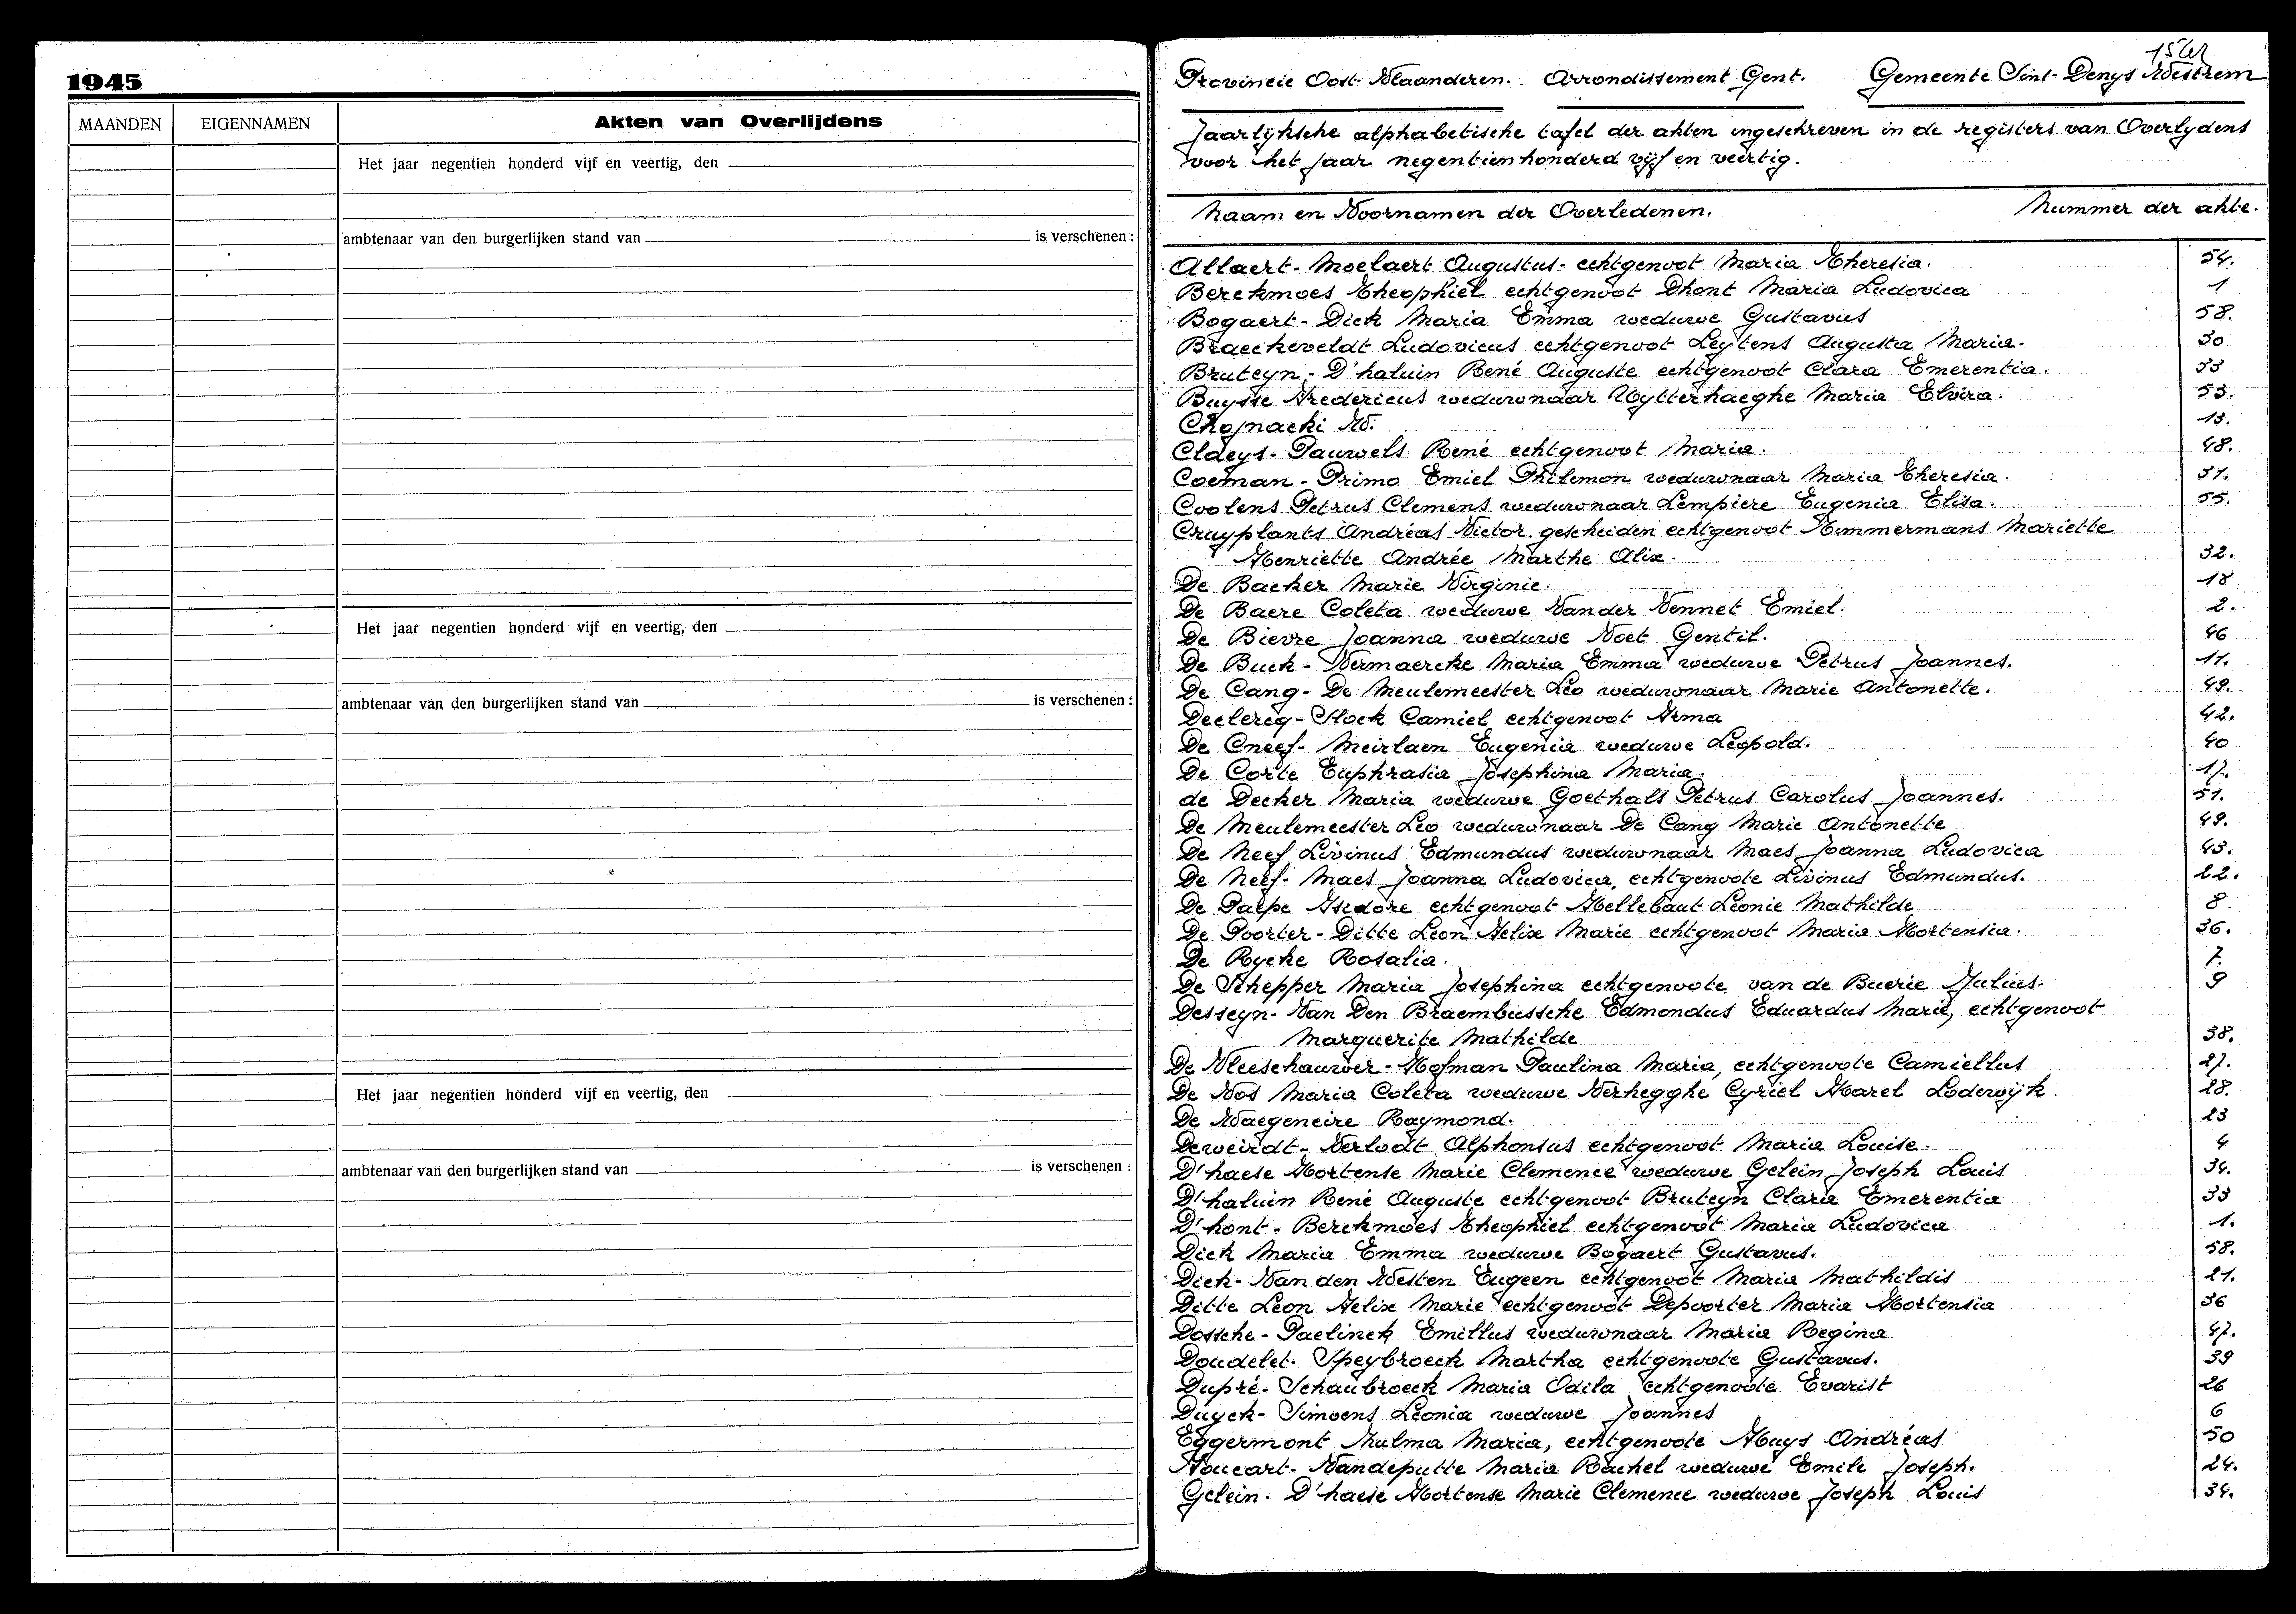 1945
MAANDEN EIGENNAMEN Akten van Overlijdens
Het jaar negentien honderd vijf en veertig, den
ambtenaar van den burgerlijken stand van is verschenen :
Het jaar negentien honderd vijf en veertig, den
ambtenaar van den burgerlijken stand van is verschenen :
Het jaar negentien honderd vijf en veertig, den
ambtenaar van den burgerlijken stand van is verschenen :
Provincie Oost-Vlaanderen. Arrondissement Gent. Gemeente Sint-Denys Westrem
Jaarlijksche alphabetische tafel der akten ingeschreven in de registers van Overlydens
voor het jaar negentienhonderd vijf en veertig.
Naam en Voornamen der Overledenen. Nummer der akte.
Allaert-Moelaert Augustus-echtgenoot Maria Theresia. 54.
Berckmoes Theophiel echtgenoot Dhont Maria Ludovica 1
Bogaert-Dick Maria Emma weduwe Gustavus 58.
Braeckeveldt Ludovicus echtgenoot Leytens Augusta Maria. 30
Bruteyn-D'haluin René Auguste echtgenoot Clara Emerentia. 33
Buysse Fredericus weduwnaar Uytterhaeghe Maria Elvira. 53.
Chojnacki W. 13.
Claeys-Pauwels René echtgenoot Maria. 48.
Coeman-Primo Emiel Philemon weduwnaar Maria Theresia. 31.
Coolens Petrus Clemens weduwnaar Lempiere Eugenia Elisa. 55.
Cruyplants Andréas Victor gescheiden echtgenoot Timmermans Mariette
Henriette Andrée Marthe Alix. 32.
De Backer Marie Virginie. 18
De Baere Coleta weduwe Van der Vennet Emiel. 2.
De Bievre Joanna weduwe Voet Gentil. 46
De Buck-Vermaercke Maria Emma weduwe Petrus Joannes. 11.
De Cang-De Meulemeester Leo weduwnaar Marie Antonette. 49.
Declercq-Stock Camiel echtgenoot Irma 42.
De Cneef-Meirlaen Eugenia weduwe Leopold. 40
De Corte Euphrasia Josephina Maria. 17.
de Decker Maria weduwe Goethals Petrus Carolus Joannes. 51.
De Meulemeester Leo weduwnaar De Cang Marie Antonette 49.
De Neef Livinus Edmundus weduwnaar Maes Joanna Ludovica 43.
De Neef-Maes Joanna Ludovica, echtgenote Livinus Edmundus. 22.
De Paepe Isidore echtgenoot Hellebaut Leonie Mathilde 8.
De Poorter-Ditte Leon Felix Marie echtgenoot Maria Hortensia. 36.
De Rycke Rosalia. 7.
De Schepper Maria Josephina echtgenoote van de Buerie Julius. 9
Desseyn-Van Den Braembussche Edmondus Eduardus Marie, echtgenoot
Marguerite Mathilde 38.
De Vleeschauwer-Hofman Paulina Maria, echtgenoote Camiellus 27.
De Vos Maria Coleta weduwe Verhegghe Cyriel Karel Lodewijk. 28.
De Waegeneire Raymond. 23
Deweirdt-Verlodt Alphonsus echtgenoot Maria Louise. 4
D'haese Hortense Marie Clemence weduwe Gelein Joseph Louis 34.
D'haluin René Auguste echtgenoot Bruteyn Clara Emerentia 33
D'hont-Berckmoes Theophiel echtgenoot Maria Ludovica 1.
Dick Maria Emma weduwe Bogaert Gustavus. 58.
Dick-Van den Westen Eugeen echtgenoot Maria Mathildis 21.
Ditte Leon Felix Marie echtgenoot Depoorter Maria Hortensia 36
Dossche-Paelinck Emillus weduwnaar Maria Regina 47.
Doudelet-Speybroeck Martha echtgenoote Gustavus. 39
Dupré-Schaubroeck Maria Odila echtgenoote Evarist 26
Duyck-Simoens Leonia weduwe Joannes 6
Eggermont Zulma Maria, echtgenoote Huys Andréas 50
Foucart-Vandeputte Maria Rachel weduwe Emile Joseph. 24.
Gelein-D'haese Hortense Marie Clemence weduwe Joseph Louis 34.